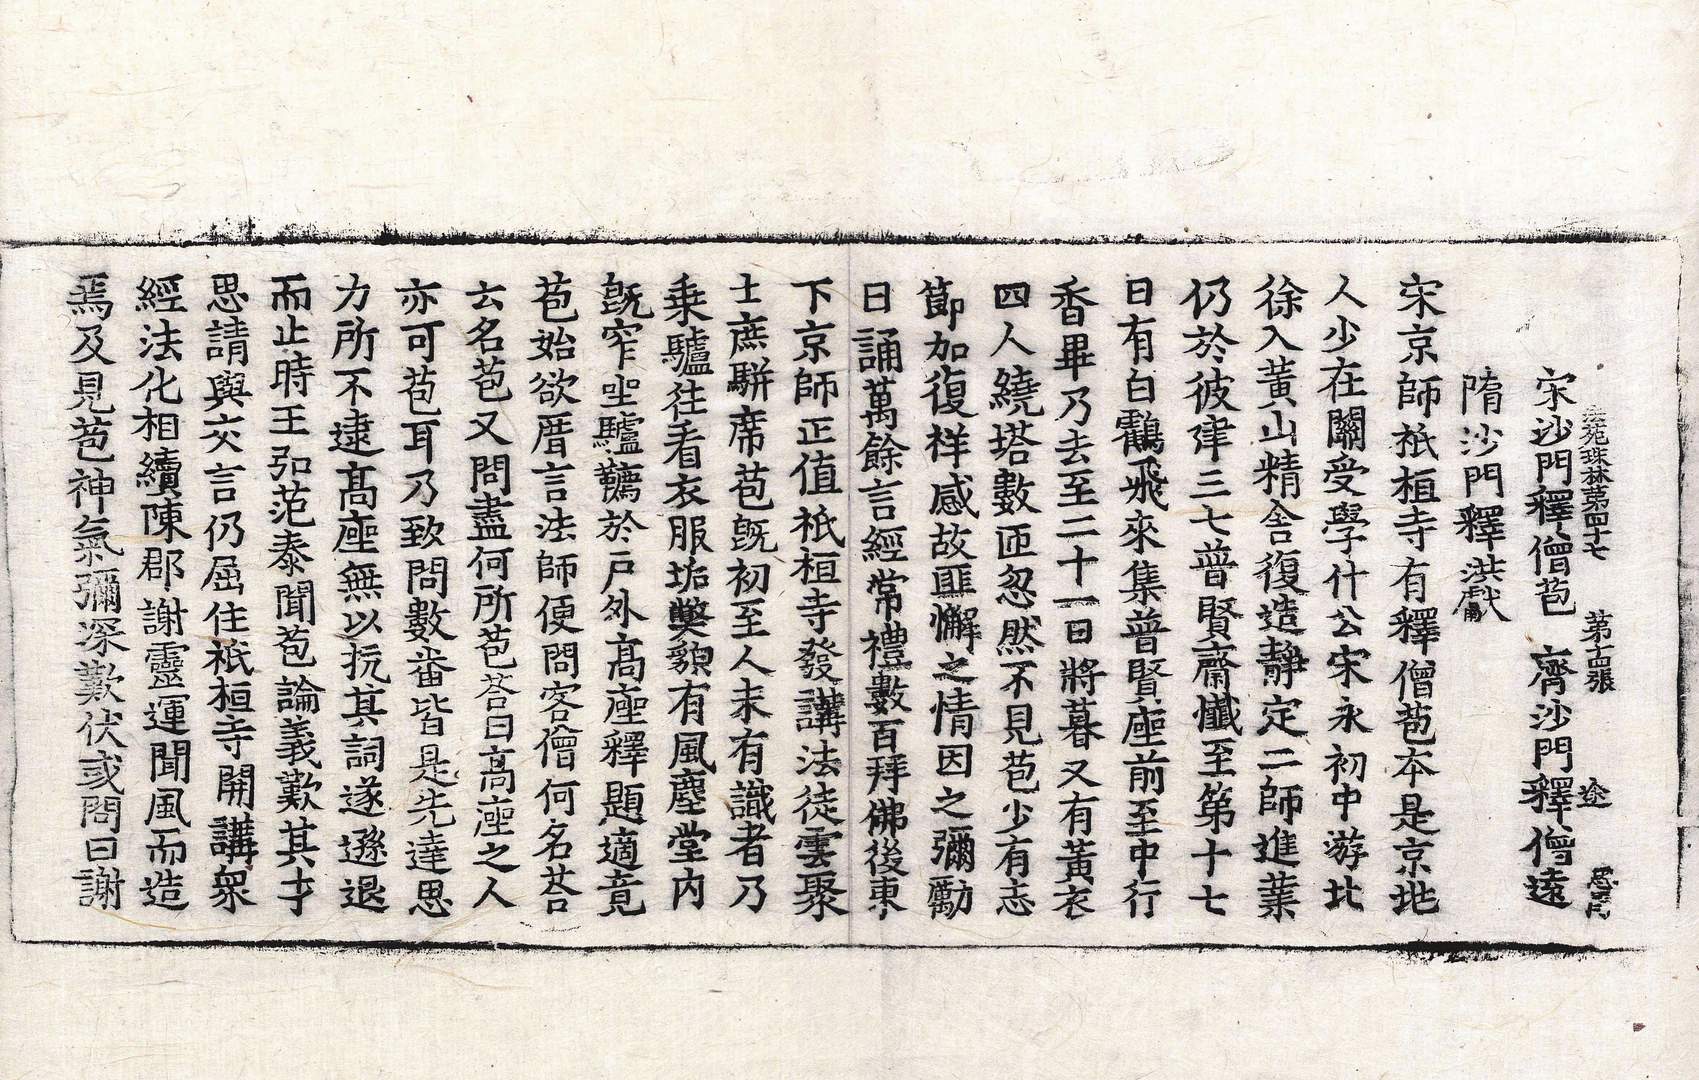 法苑珠林第四十七 第十四張 途
宋沙門釋僧苞 齊沙門釋僧遠
隋沙門釋洪獻
宋京師祇桓寺有釋僧苞本是京地
人少在關受學什公宋永初中游北
徐入黃山精舍復造靜定二師進業
仍於彼建三七普賢齋懺至第十七
日有白鸖飛來集普賢座前至中行
香畢乃去至二十一日將暮又有黃衣
四人繞塔數匝忽然不見苞少有志
節加復祥感故匪懈之情因之彌勵
日誦萬餘言經常禮數百拜佛後東
下京師正值祇桓寺發講法徒雲聚
士庶駢席苞旣初至人未有識者乃
乘驢往看衣服垢弊貌有風塵堂內
旣窄坐驢韉於戶外高座釋題適竟
苞始欲厝言法師便問客僧何名荅
云名苞又問盡何所苞荅曰高座之人
亦可苞耳乃致問數番皆是先達思
力所不逮高座無以抗其詞遂遜退
而止時王弘范泰聞苞論義歎其才
思請與交言仍屈住祇桓寺開講衆
經法化相續陳郡謝靈運聞風而造
焉及見苞神氣彌深歎伏或問曰謝